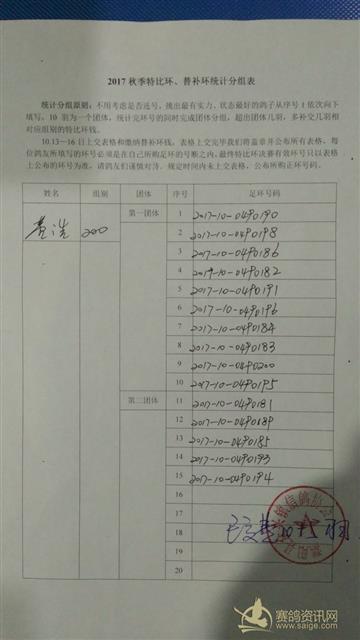 2017 秋季特比环、替补环统计分组表
统计分组原则：不用考虑是否连号，挑出最有实力、状态最好的鸽子从序号 1 依次向下
填写。10 羽为一个团体，统计完环号的同时完成团体分组，超出团体几羽，多补交几羽相
对应组别的特比环钱。
10.13－16 日上交表格和缴纳替补环钱。表格上交完毕我们将盖章并公布所有表格。每
位鸽友所填写的环号必须是在自己所购足环的号断之内,最终特比环决赛有效环号只以表格
上公布的环号为准，请鸽友们谨慎对待。规定时间内未上交表格，公布所购正环号码。
姓名 组别 团体 序号 足环号码
200 第一团体 1 2017-10-0490190
2 2017-10-0490198
3 2017-10-0490186
4 2017-10-0490182
5 2017-10-0490191
6 2017-10-0490196
7 2017-10-0490184
8 2017-10-0490183
9 2017-10-0490200
10 2017-10-0490195
第二团体 11 2017-10-0490181
12 2017-10-0490189
13 2017-10-0490185
14 2017-10-0490193
15 2017-10-0490194
16
17
18
19
20
赛鸽资讯网
www.saige.com